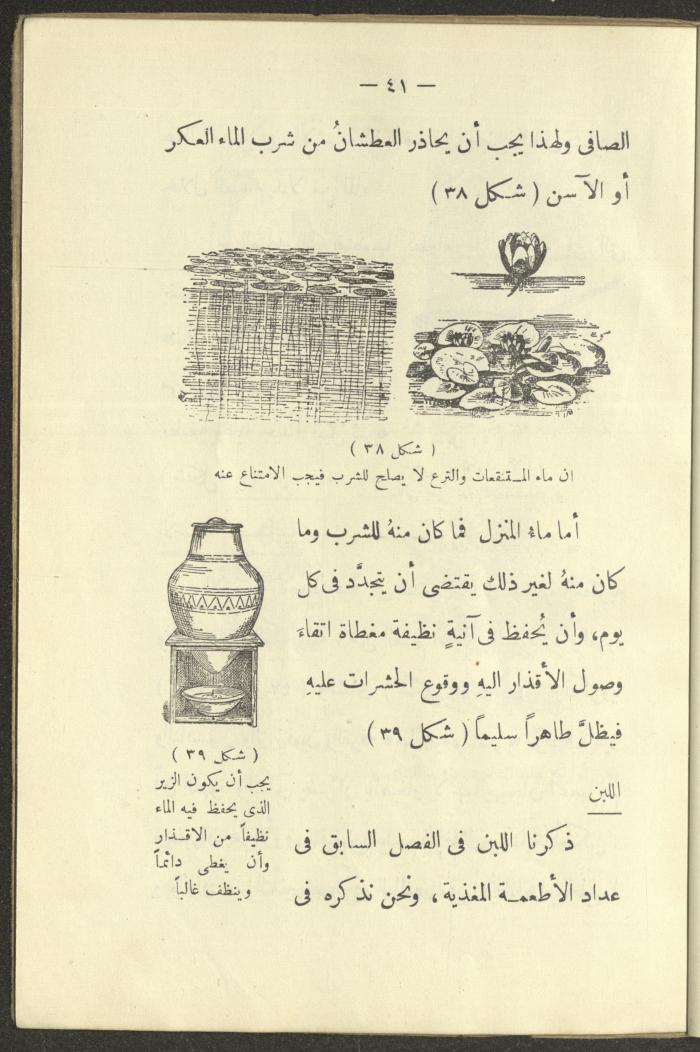 — ٤١ —
الصافى ولهذا يجب أن يحاذر العطشانُ من شرب الماء العكر
أو الآسن ( شكل ٣٨ )
( شكل ٣٨ )
ان ماء المستنقعات والترع لا يصلح للشرب فيجب الامتناع عنه
أما ماءُ المنزل فما كان منهُ للشرب وما
كان منهُ لغير ذلك يقتضى أن يتجدَّد فى كل
يوم، وأن يُحفظ فى آنيةٍ نظيفة مغطاة اتقاءَ
وصول الأقذار اليهِ ووقوع الحشرات عليهِ
فيظلَّ طاهراً سليماً ( شكل ٣٩ )
( شكل ٣٩ )
يجب أن يكون الزير
الذى يحفظ فيه الماء
نظيفاً من الاقذار
وأن يغطى دائماً
وينظف غالباً
اللبن
ذكرنا اللبن فى الفصل السابق فى
عداد الأطعمة المغذية، ونحن نذكره فى